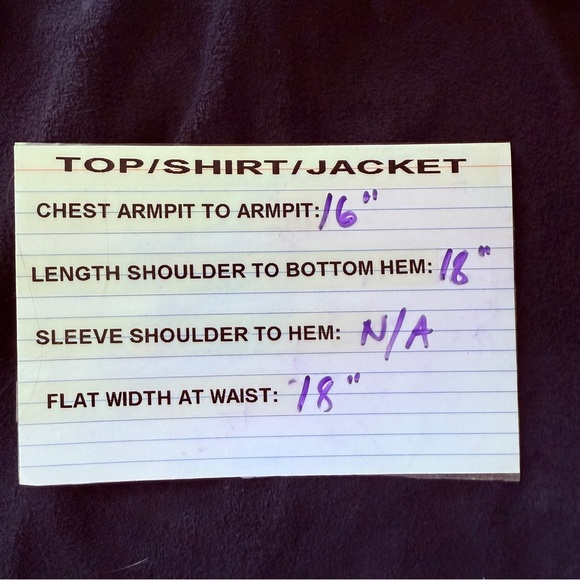 TOP/SHIRT/JACKET
CHEST ARMPIT TO ARMPIT: 16"
LENGTH SHOULDER TO BOTTOM HEM: 18"
SLEEVE SHOULDER TO HEM: N/A
FLAT WIDTH AT WAIST: 18"